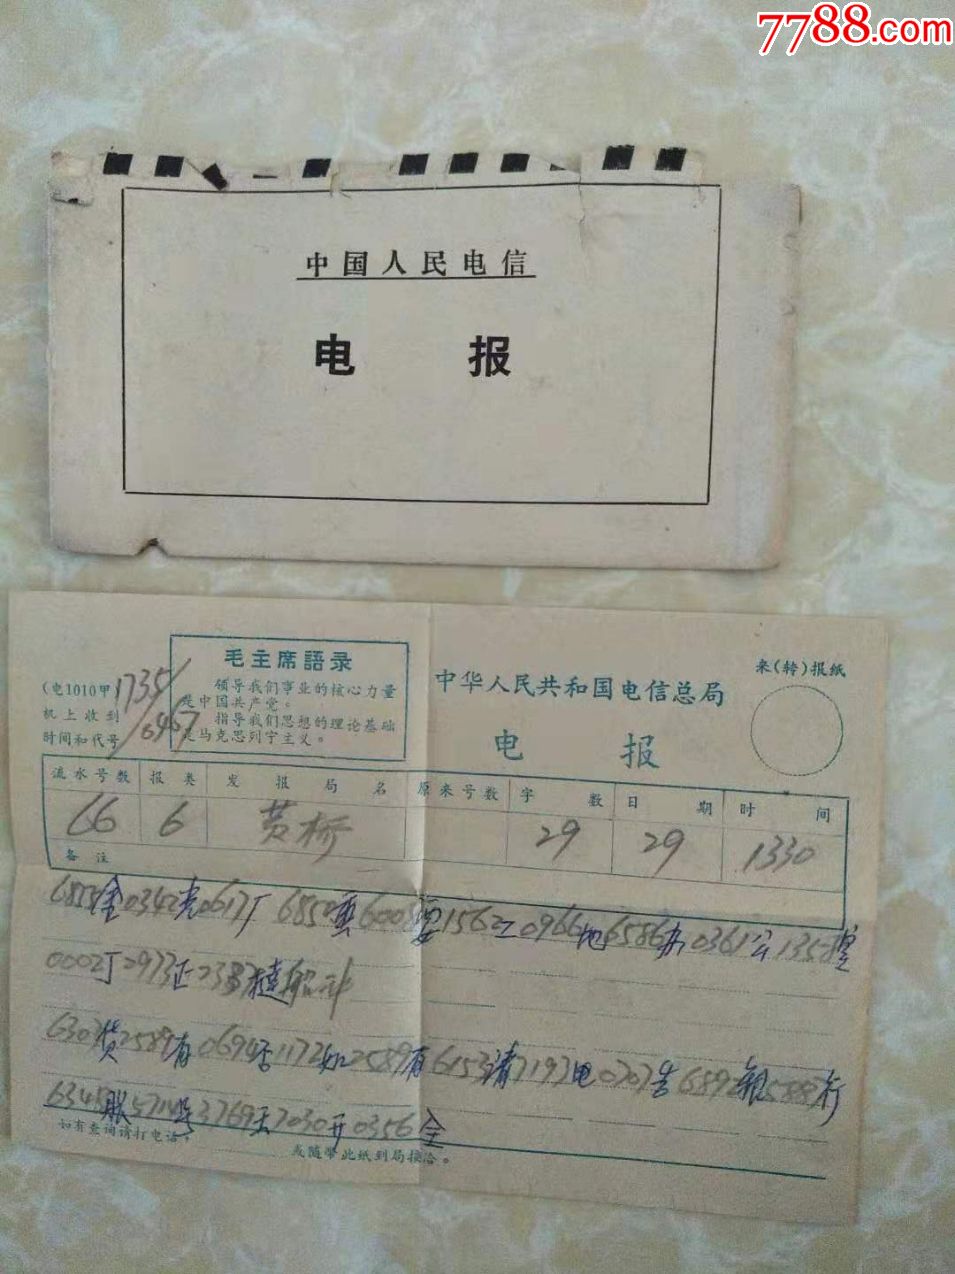 7788.com
中国人民电信
电 报
毛主席語录
领导我们事业的核心力量
是中国共产党。
指导我们思想的理论基础
是马克思列宁主义。
(电1010甲
机上收到
时间和代号
1735
中华人民共和国电信总局
电 报
来(转)报纸
流水号数 报类 发报局名 原来号数 字数 日期 时间
66 6 黄桥 29 29 1330
备注
6855金0342光0617厂 6852 6008要1562工0966地6586办0361公1358
0002丁2973正
6303货2589有0694否1172如2589有6153请7193电0707告6892银5887行
6345账 3769天7030开0356全
如有查询请打电话,
或随带此纸到局接洽。